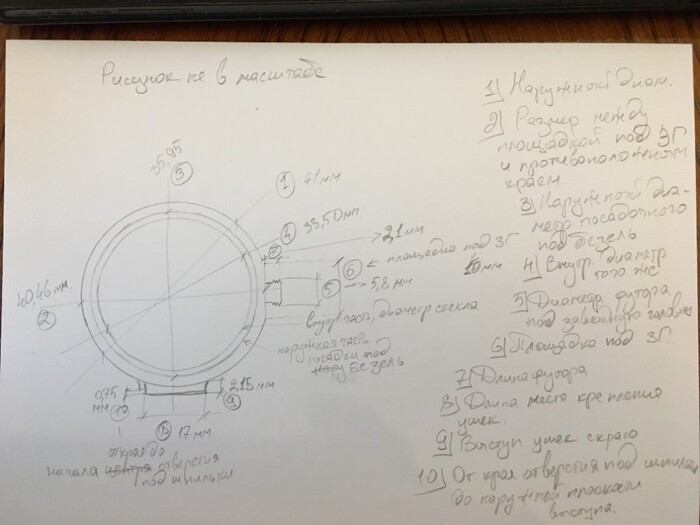 Рисунок не в масштабе
35,95
3
1
41 мм
4
33,50 мм
>2,1 мм
7
6
площадка под ЗГ
10 мм
5
5,8 мм
40,46 мм.
2
внутр часть, диаметр стекла
наружная часть
посадки под
безель
0,75
мм
10
2,15 мм
9
8
17 мм
от края до
начала центра отверстия
под шпильки
1) Наружный диам.
2) Размер между
площадкой под ЗГ
и противоположным
краем
3) Наружный диа-
метр посадочного
под безель
4) Внутр. диаметр
того же
5) Диаметр футора
под заводную головку
6) Площадка под ЗГ.
7) Длина футора
8) Длина места крепления
ушек.
9) Выступ ушек скраю
10) От края отверстия под шпильки
до наружной плоскости
выступа.